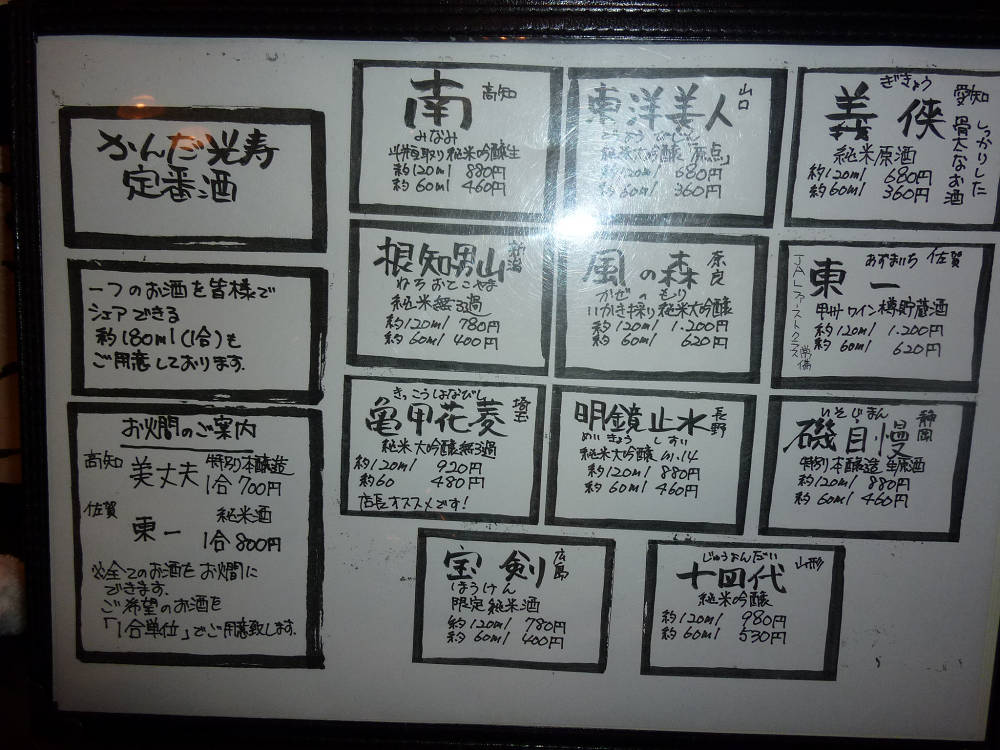 かんだ光寿
定番酒
一つのお酒を皆様で
シェアできる
約180ml(1合)も
ご用意しております.
お燗のご案内
高知
美丈夫
特別本醸造
1合700円
佐賀
東一
純米酒
1合800円
※全てのお酒をお燗に
できます.
ご希望のお酒を
「1合単位」でご用意致します.
南
高知
みなみ
純米吟醸生
約120ml 880円
約60ml 460円
東洋美人
山口
純米大吟醸
約120ml 680円
約60ml 360円
ぎきょう
義侠
愛知
しっかりした
骨太なお酒
純米原酒
約120ml 680円
約60ml 360円
根知男山
新潟
ねちおとこやま
純米無3過
約120ml 780円
約60ml 400円
風の森
奈良
かぜのもり
いかき採り純米大吟醸
約120ml 1.200円
約60ml 620円
あずまいち
佐賀
東一
JALファーストクラス常備
甲州ワイン樽貯蔵酒
約120ml 1.200円
約60ml 620円
きっこうはなびし
亀甲花菱
埼玉
純米大吟醸無3過
約120ml 920円
約60 480円
店長オススメです!
明鏡止水
長野
めいきょうしすい
純米大吟醸 m.14
約120ml 880円
約60ml 460円
いそじまん
静岡
磯自慢
特別本醸造 生原酒
約120ml 880円
約60ml 460円
宝剣
広島
ほうけん
限定純米酒
約120ml 780円
約60ml 400円
じゅうよんだい
山形
十四代
純米吟醸
約120ml 980円
約60ml 530円